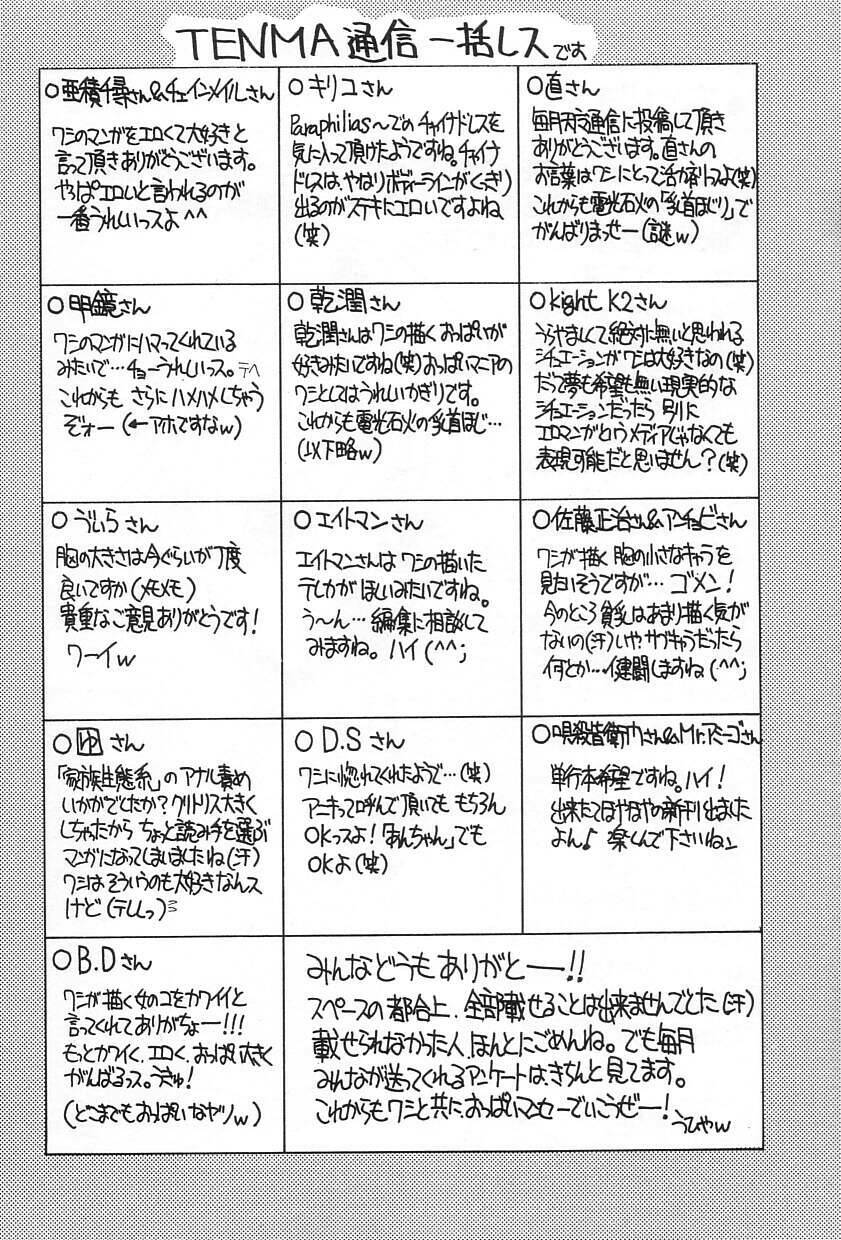 TENMA通信一括レスです
○亜積千尋さん&チェインメイルさん
ワシのマンガをエロくて大好きと
言って頂きありがとうございます。
やっぱエロいと言われるのが
一番うれしいっスよ^^
○キリコさん
Paraphilias〜でのチャイナドレスを
気に入って頂けたようですね。チャイナ
ドレスは、やはりボディーラインがくっきり
出るのがステキにエロいですよね
(笑)
○直さん
毎月天通信に投稿して頂き
ありがとうございます。直さんの
お言葉はワシにとって活力剤っスよ(笑)
これからも電光石火の「乳首ほじり」で
がんばりまっせー(謎w)
○明鏡さん
ワシのマンガにハマってくれている
みたいで…チョーうれしいっス。テヘ
これからも さらにハメハメしちゃう
ぞォー(←アホですなw)
○乾潤さん
乾潤さんはワシの描くおっぱいが
好きみたいですね(笑)おっぱいマニアの
ワシとしてはうれしいかぎりです。
これからも電光石火の乳首ほじ…
(以下略w)
○Kight K2さん
うらやましくて絶対に無いと思われる
シチュエーションがワシは大好きなの(笑)
だって夢も希望も無い現実的な
シチュエーションだったら 別に
エロマンガというメディアじゃなくても
表現可能だと思いません?(笑)
○うぃらさん
胸の大きさは今ぐらいが丁度
良いですか(メモメモ)
貴重なご意見ありがとうです!
ワーイw
○エイトマンさん
エイトマンさんはワシの描いた
テレカがほしいみたいですね。
う〜ん…編集に相談して
みますね。ハイ(^^;
○佐藤正治さん&アンチョビさん
ワシが描く胸の小さなキャラを
見たいそうですが…ゴメン!
今のところ貧乳はあまり描く気が
ないの(汗)いや、サブキャラだったら
何とか…健闘しますね(^^;
○ゆさん
「家族生態系」のアナル責め
いかがでしたか?クリトリス大きく
しちゃたから ちょっと読み手を選ぶ
マンガになってしまいましたね(汗)
ワシはそういうのも大好きなんス
けど(テレっ)
○D.Sさん
ワシに惚れてくれたようで…(笑)
アニキって呼んで頂いても もちろん
OKっスよ!「あんちゃん」でも
OKよ(笑)
○呪殺皆衛門さん&Mr.アミーゴさん
単行本希望ですね。ハイ!
出来たてほやほやの新刊出ました
よん♪ 楽しんで下さいね
○B.Dさん
ワシが描く女のコをカワイイと
言ってくれてありがちょー!!!
もっとカワイく、エロく、おっぱい大きく
がんばるっス。うきゅ!
(どこまでもおっぱいなヤツw)
みんなどうもありがとー!!
スペースの都合上、全部載せることは出来ませんでした(汗)
載せられなかった人、ほんとにごめんね。でも毎月
みんなが送ってくれるアンケートは、きちんと見てます。
これからもワシと共におっぱいマンセーでいこうぜー!
うひゃw